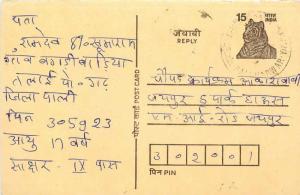 पता
रामदेव S/० खूमाराम
गाँव बगड़ी वाड़िया
तेलाई पो. गढ़
जिला पाली
पिन 305923
आयु 17 वर्ष
साक्षर - IX पास
जवाबी
REPLY
15
भारत
INDIA
पोस्ट कार्ड POST CARD
चौपड़ कार्यक्रम आकाशवाणी
जयपुर 5 पार्क हाऊस
एम. आई. रोड जयपुर
302001
पिन PIN